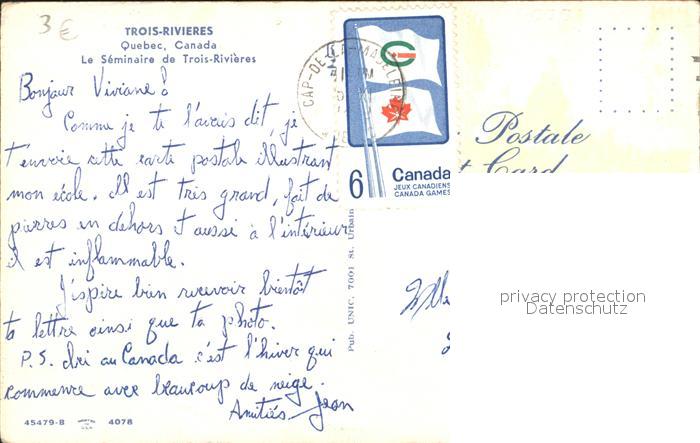 3 €
TROIS-RIVIERES
Quebec, Canada
Le Séminaire de Trois-Rivières
Bonjour Viviane!
Comme je te l'avais dit, je
t'envoie cette carte postale illustrant
mon école. Il est très grand, fait de
pierres en dehors et aussi à l'intérieur
il est inflammable.
J'espire bien recevoir bientôt
ta lettre ainsi que ta photo.
P.S. Ici au Canada c'est l'hiver qui
commence avec beaucoup de neige.
Amitiés Jean
45479-B 4078
CAP-DE-LA-MADELEINE
PM
6 Canada
JEUX CANADIENS
CANADA GAMES
Pub. UNIC, 7001 St. Urbain
Postale
t Card
Mlle
privacy protection
Datenschutz